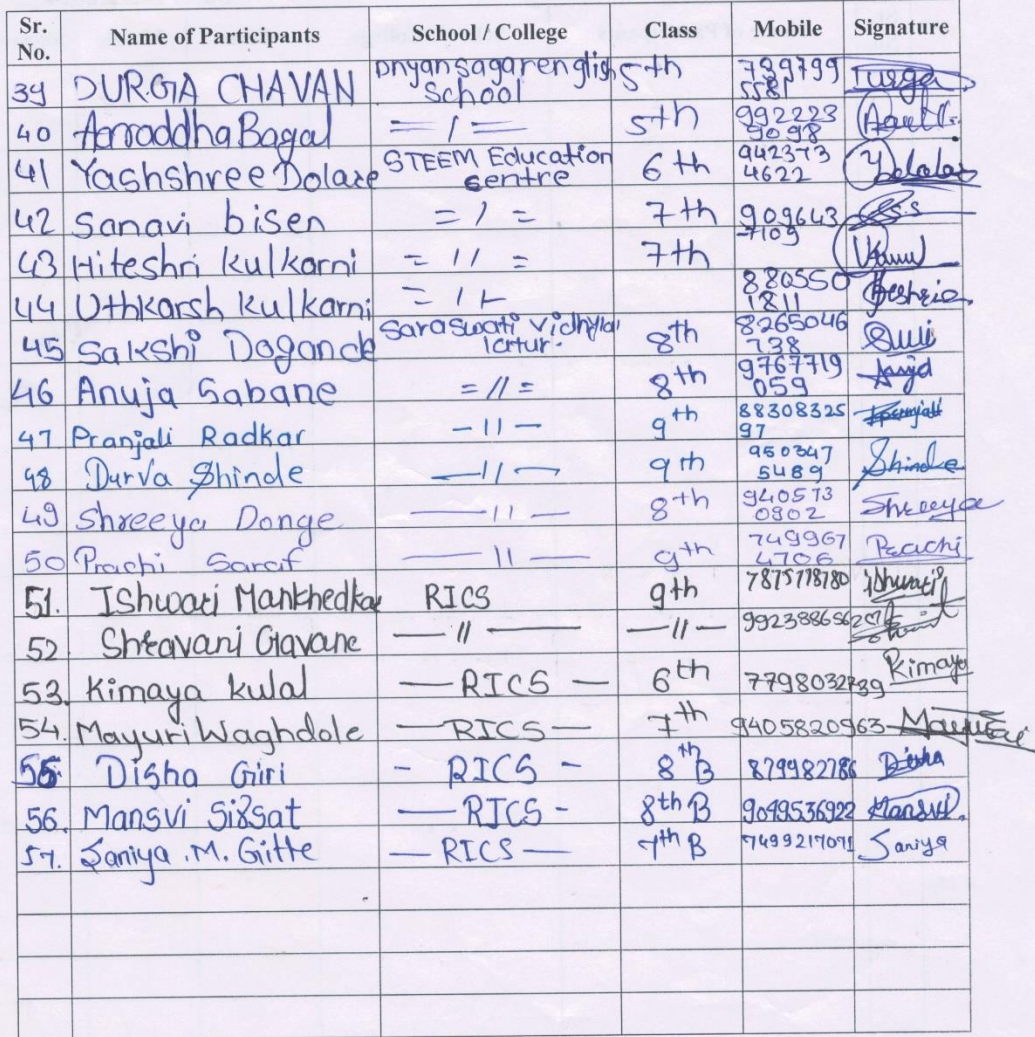 Sr. No. Name of Participants School / College Class Mobile Signature
39 DURGA CHAVAN Dnyansagarenglish School 5th 789799 5581 Durga
40 Anraddha Bagal = / = 5th 992223 9098
41 Yashshree Dolare STEEM Education centre 6th 942373 4622
42 Sanavi bisen = / = 7th 909643 7109
43 Hiteshri kulkarni = // = 7th
44 Uthkarsh kulkarni = / - 880550 1811
45 Sakshi Dogande Saraswati vidhylai latur. 8th 8265046 738
46 Anuja Sabane = // = 8th 9767719 059 Anuja
47 Pranjali Radkar - 11 - 9th 88308325 97 Pranjali
48 Durva Shinde - 11 - 9th 950347 5489 Shinde
49 Shreeya Donge - 11 - 8th 940573 0902 Shreeya
50 Prachi Saraf - 11 - 9th 749967 4706 Prachi
51. IShwari Mankhedkar RICS 9th 7875778780 Ishwari
52 Shravani Gavane - // - - // -
53. Kimaya kulal - RICS - 6th 7798032739 Kimaya
54. Mayuri Waghdole - RICS - 7th 9405820963 Mayuri
55. Disha Giri - RICS - 8th B 879982786 Disha
56. Mansvi Sirsat - RICS - 8th B 9049536922 Mansvi
57. Saniya .M. Gitte - RICS - 7th B 7499217071 Saniya